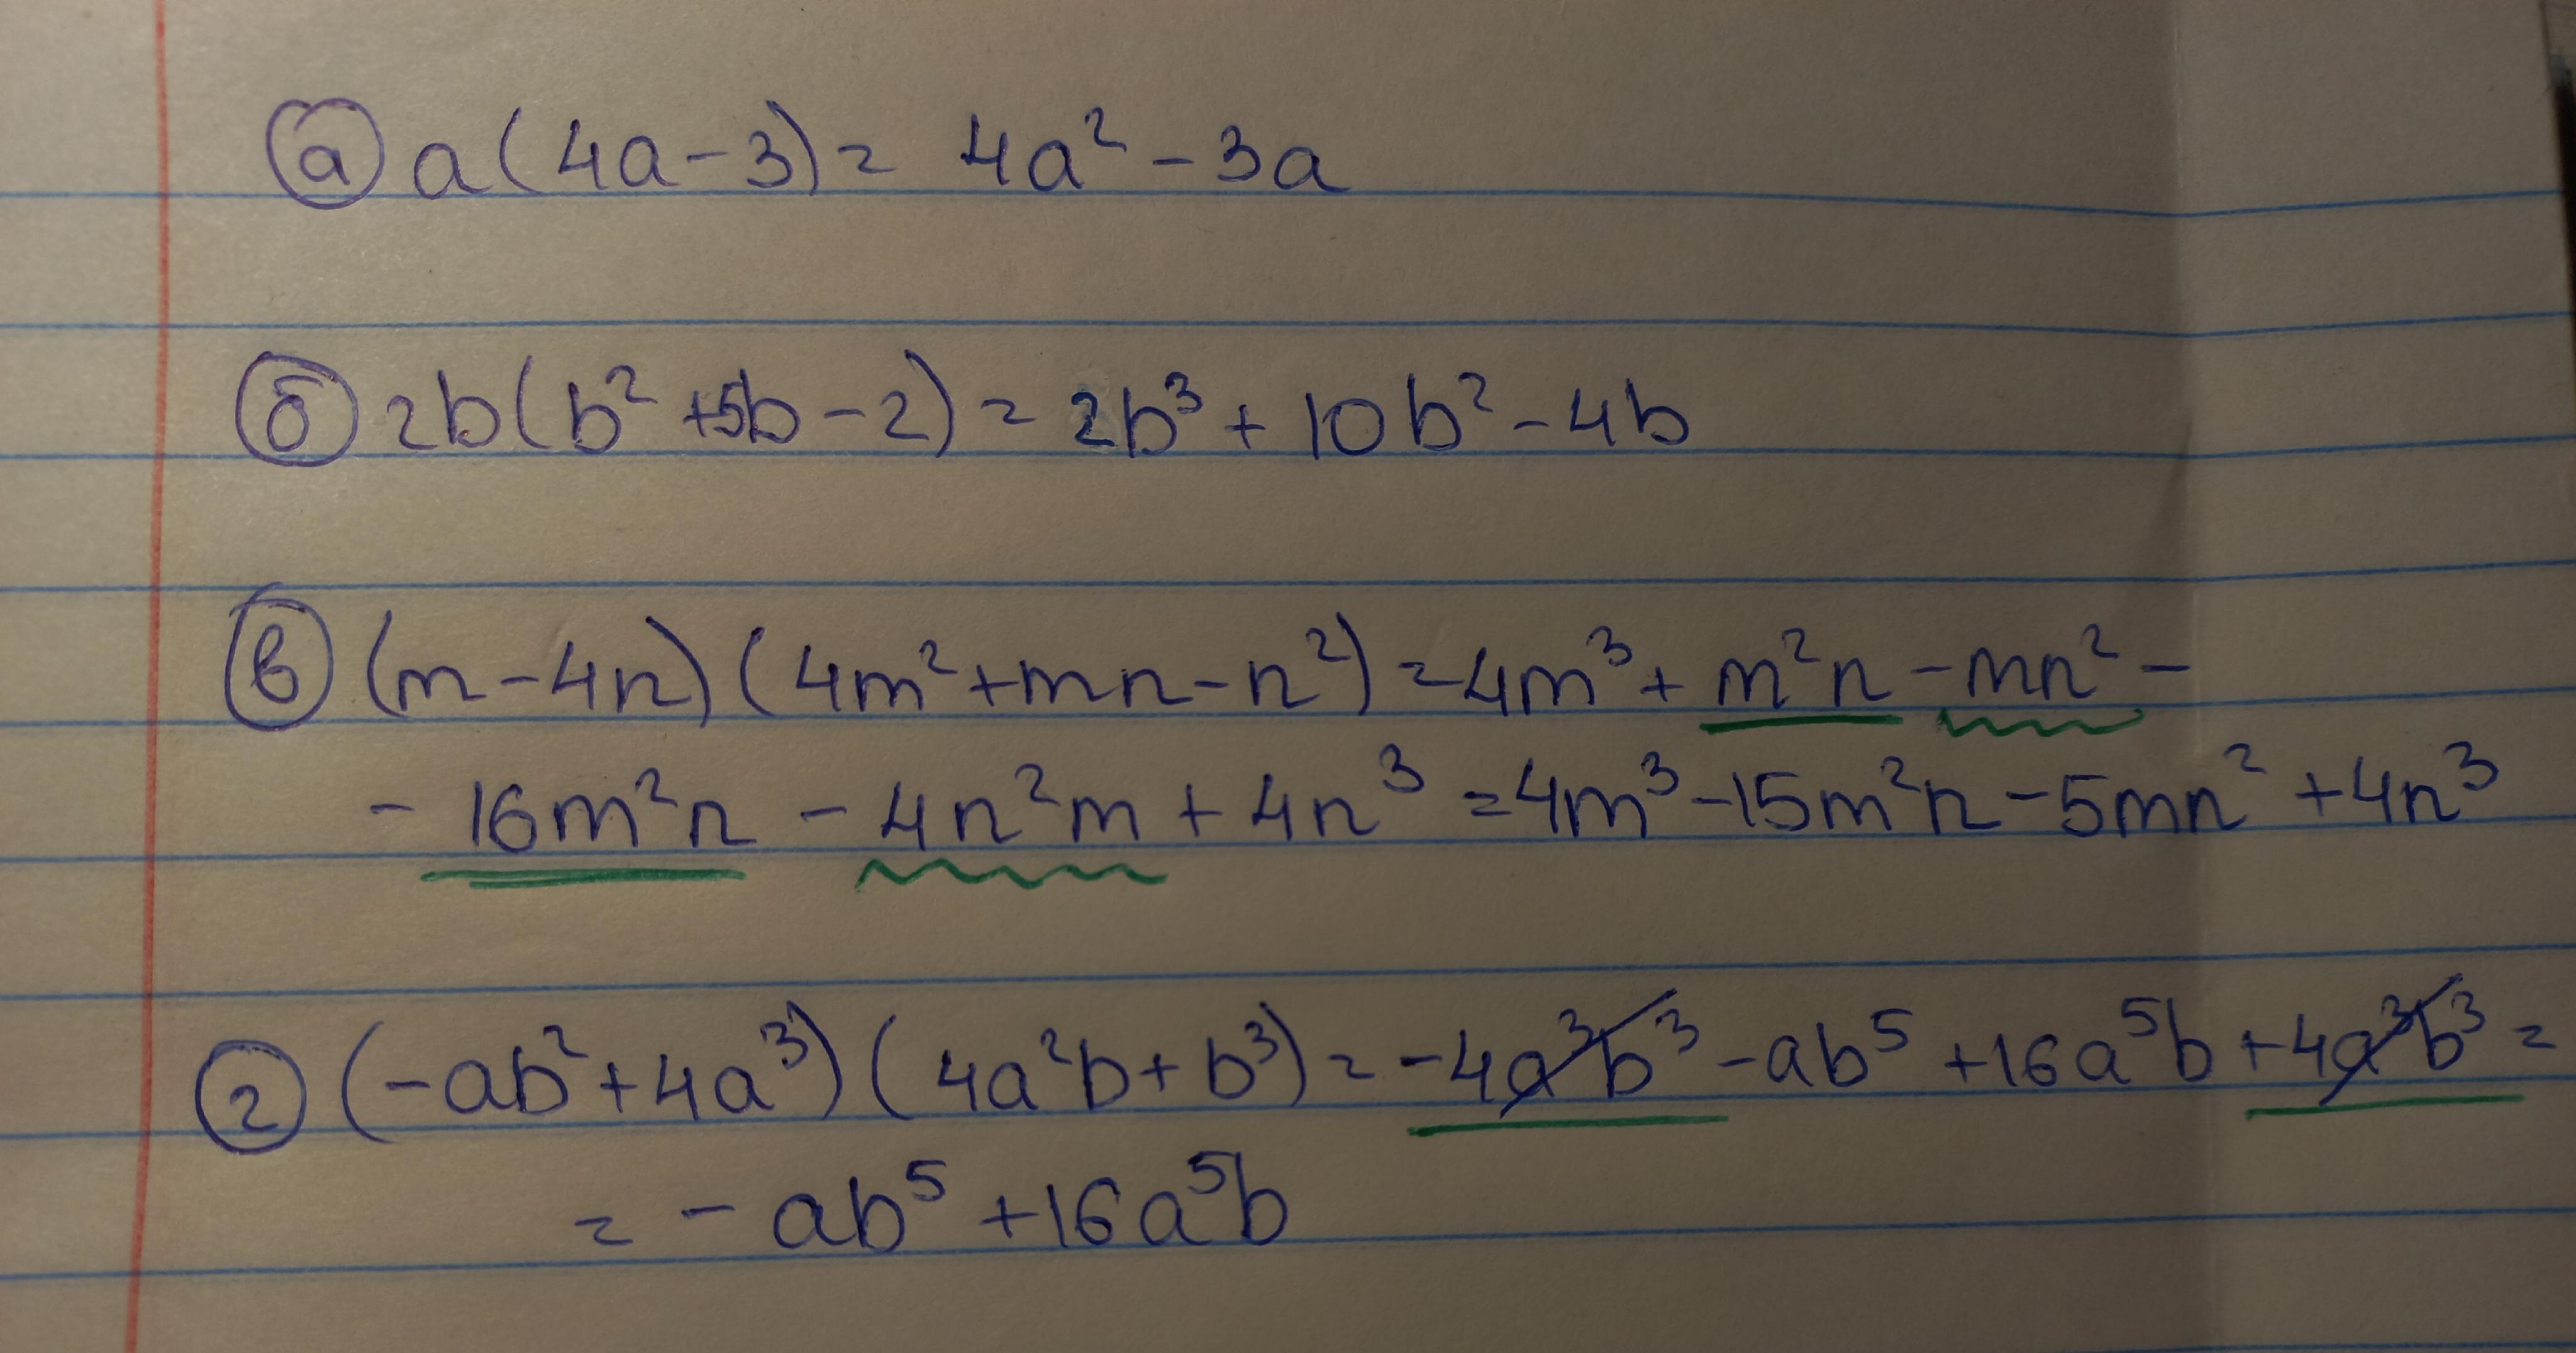 а a(4a-3)= 4a² - 3a
б 2b(b² +5b-2)= 2b³ + 10b² - 4b
в (m-4n)(4m²+mn-n²)=4m³+ m²n - mn² -
- 16m²n - 4n²m + 4n³ =4m³-15m²n-5mn² +4n³
г (-ab²+4a³)(4a²b+b³)= -4a³b³ -ab⁵ +16a⁵b +4a³b³ =
= - ab⁵ +16a⁵b